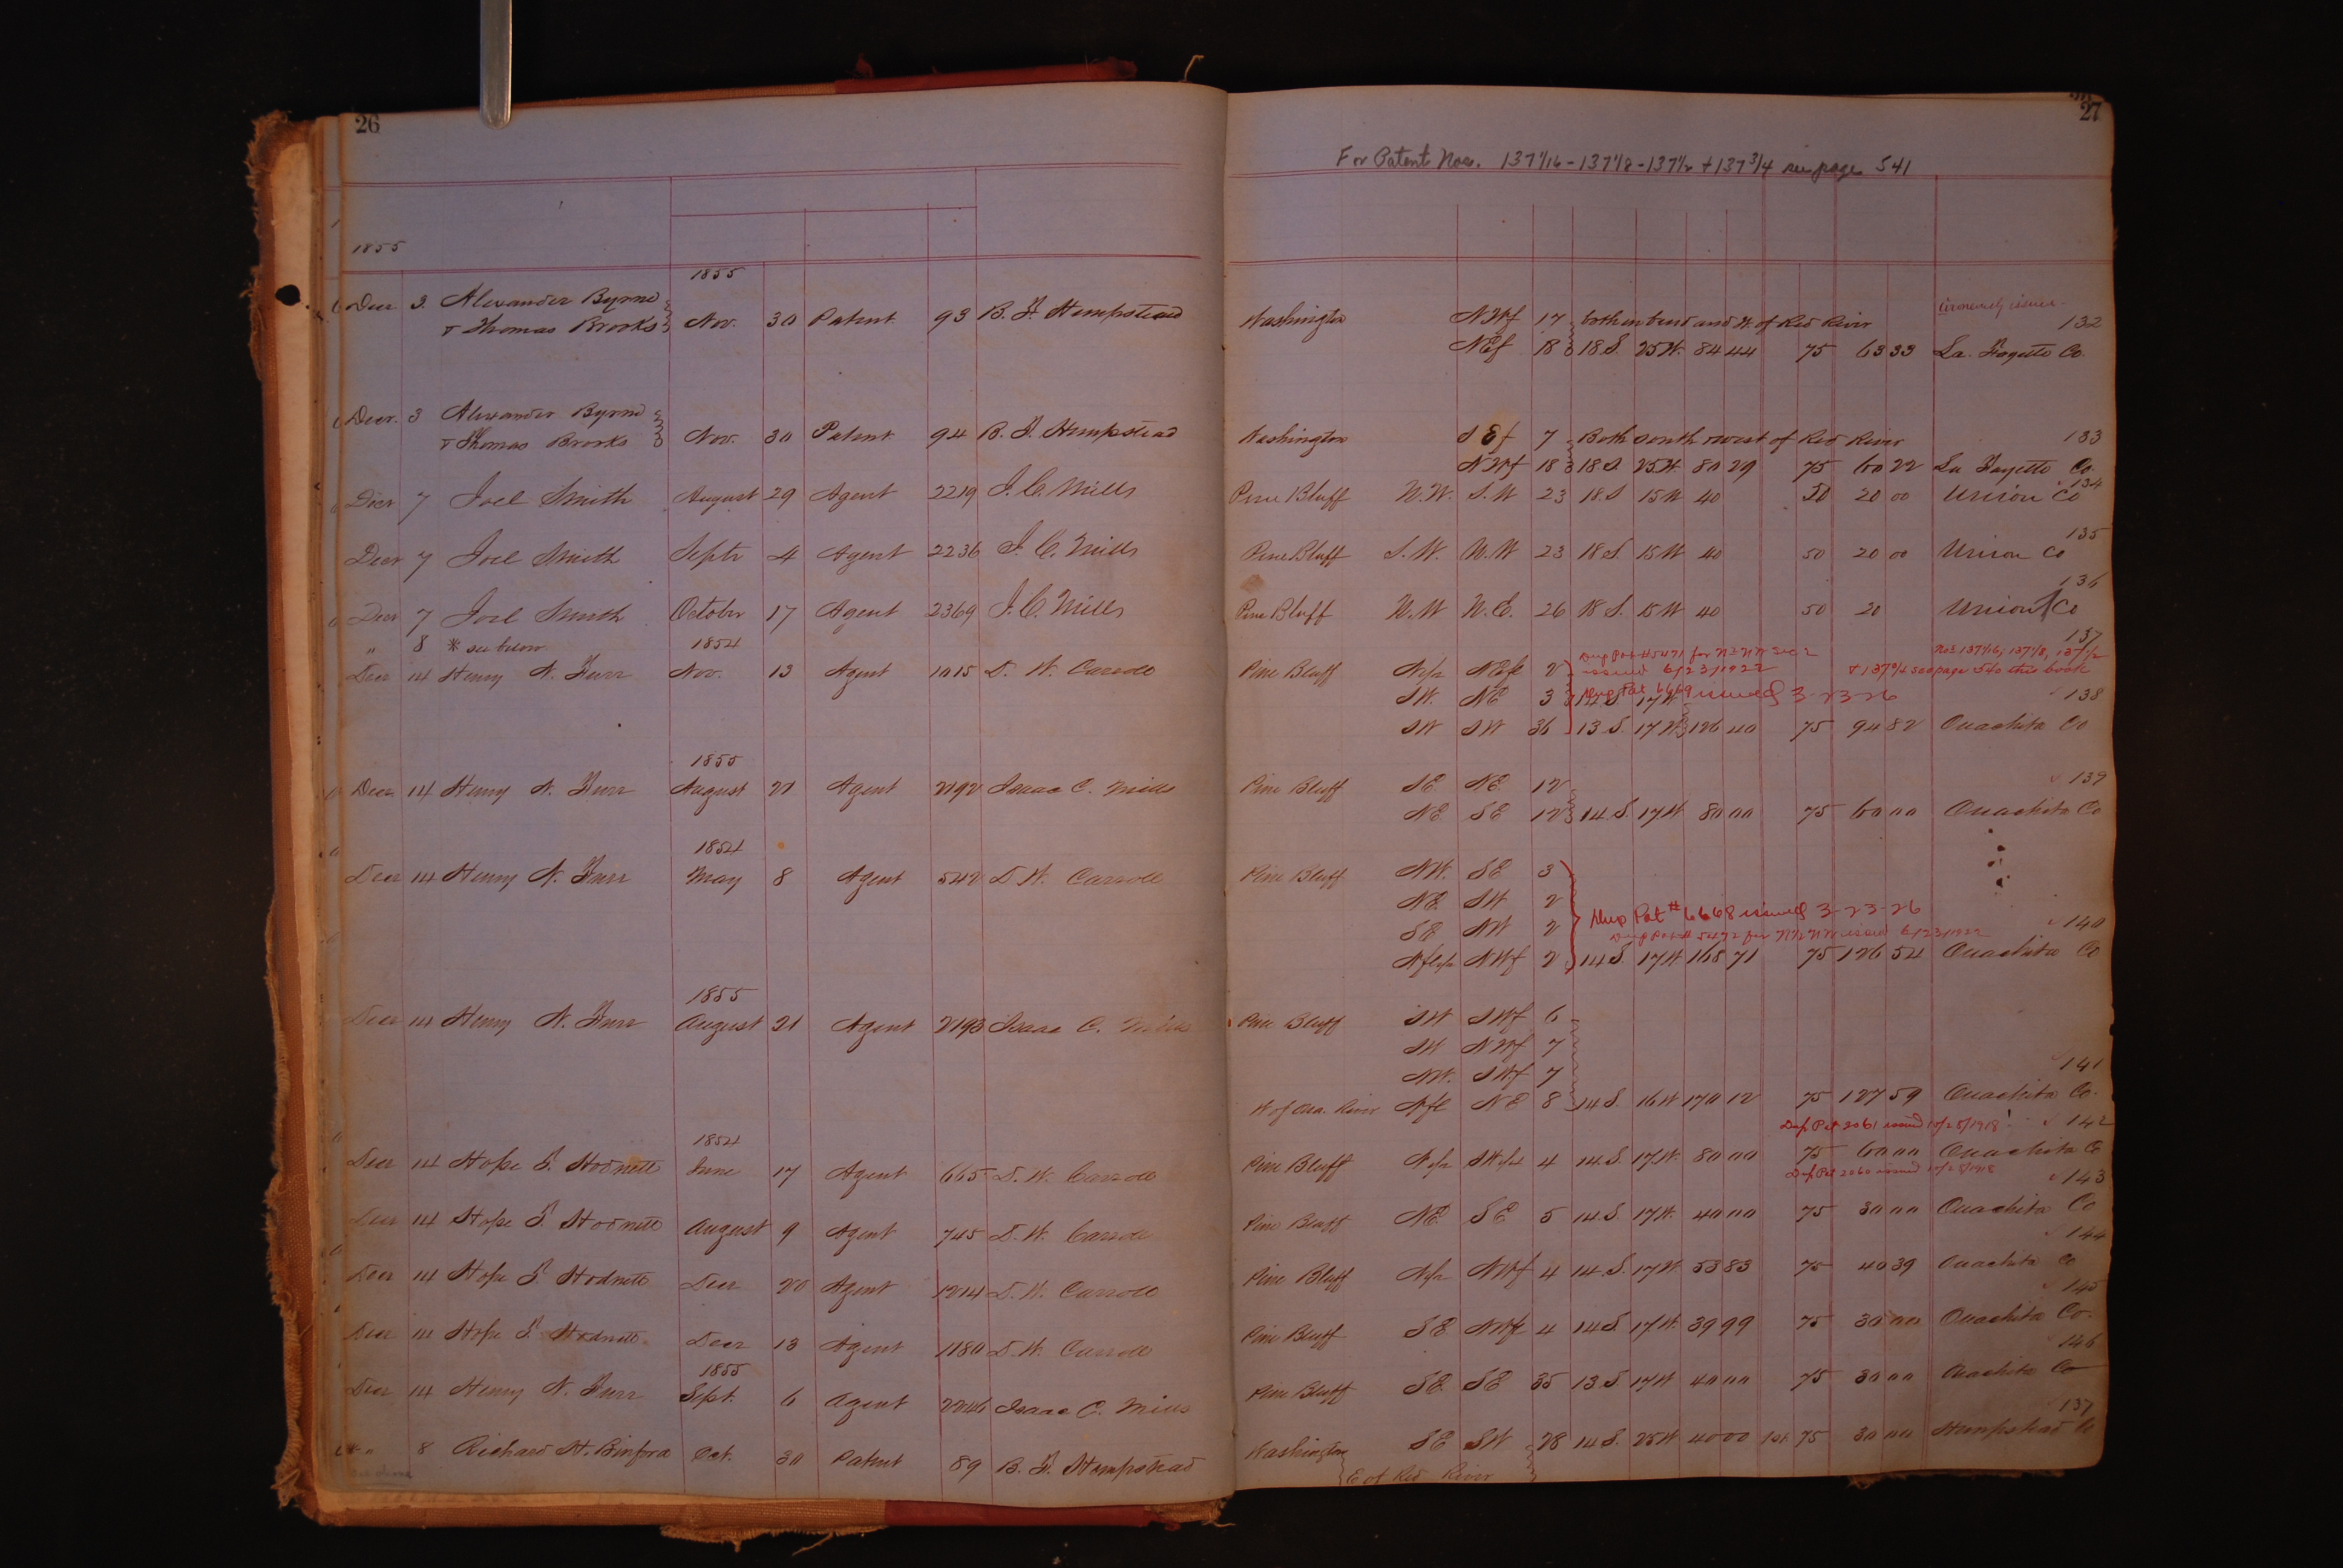 26
1855
1855
Decr 3. Alexander Byrne
& Thomas Brooks Nov. 30 Patent 93 B. F. Hempstead
Decr. 3 Alexander Byrne
& Thomas Brooks Nov. 30 Patent 94 B. F. Hempstead
Decr 7 Joel Smith August 29 Agent 2219 I. C. Mills
Decr 7 Joel Smith Septr 4 Agent 2236 I. C. Mills
Decr 7 Joel Smith October 17 Agent 2369 I. C. Mills
" 8 * see below 1854
Decr 14 Henry N. Furr Nov. 13 Agent 1015 D. W. Carroll
1855
Decr 14 Henry N. Furr August 21 Agent 2192 Isaac C. Mills
1854
Decr 14 Henry N. Furr May 8 Agent 542 D. W. Carroll
1855
Decr 14 Henry N. Furr August 21 Agent 2193 Isaac C. Mills
1854
Decr 14 Hope T. Hodnett June 17 Agent 665 D. W. Carroll
Decr 14 Hope T. Hodnett August 9 Agent 745 D. W. Carroll
Decr 14 Hope T. Hodnett Decr 20 Agent 1214 D. W. Carroll
Decr 14 Hope T. Hodnett Decr 13 Agent 1180 D. W. Carroll
1855
Decr 14 Henry N. Furr Sept. 6 Agent 2246 Isaac C. Mills
* " 8 Richard H. Binford Oct. 30 Patent 89 B. F. Hempstead
27
For Patent Nos. 137 1/16 - 137 1/8 - 137 1/2 + 137 3/4 see page 541
Washington NWf 17 both in bend and W. of Red River 132
NEf 18 18 S. 25 W. 84 44 75 63 33 La Fayette Co.
Washington SEf 7 Both South & West of Red River 133
NWf 18 18 S. 25 W. 80 29 75 60 22 La Fayette Co.
134
Pine Bluff N.W. S.W 23 18. S 15 W 40 50 20 00 Union Co
135
Pine Bluff S.W. N.W 23 18 S. 15 W 40 50 20 00 Union Co
136
Pine Bluff N.W N.E. 26 18 S. 15 W 40 50 20 Union Co
137
Dup Pat # 5471 for N½ NW Sec 2 Nos 137 1/16, 137 1/8, 137 1/2
Pine Bluff N½ NEf 2 issued 6/23/1922 & 137 3/4 see page 540 this book
SW. NE 3 14. S 17 W Dup Pat 6669 issued 3-23-26 138
SW SW 36 13 S. 17 W. 126 40 75 94 82 Ouachita Co
Pine Bluff SE NE. 12 139
NE SE 12 14. S. 17 W 80 00 75 60 00 Ouachita Co
Pine Bluff NW. SE 3
NE. SW 2
Dup Pat # 6668 issued 3-23-26
SE NW 2 Dup Pat # 5472 for N½ NW issued 6/23/1922 140
NWf 2 14 S. 17 W. 168 71 75 126 54 Ouachita Co
Pine Bluff SW SWf 6
SW NWf 7
NW. SWf 7 141
W of Oua. River NE 8 14 S. 16 W 170 12 75 127 59 Ouachita Co.
Dup Pat 2061 issued 10/25/1918 142
Pine Bluff N½ 4 14. S. 17 W. 80 00 75 60 00 Ouachita Co
Dup Pat 2060 issued 10/25/1918 143
Pine Bluff NE SE 5 14. S. 17 W. 40 00 75 30 00 Ouachita Co
144
Pine Bluff N½ NWf 4 14. S. 17 W. 53 83 75 40 39 Ouachita Co
145
Pine Bluff SE NWf 4 14 S. 17 W. 39 99 75 30 00 Ouachita Co.
146
Pine Bluff SE. SE 35 13. S. 17 W 40 00 75 30 00 Ouachita Co
137
Washington SE SW 28 14 S. 25 W 40 00 75 30 00 Hempstead Co
E of Red River